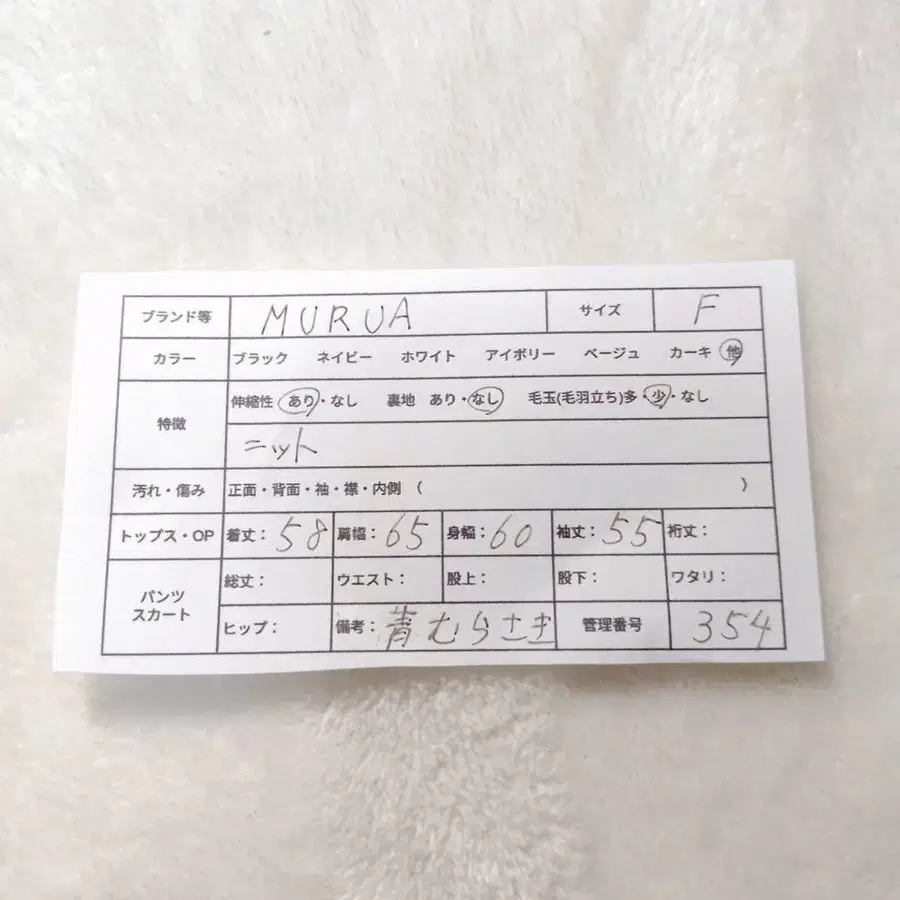 ブランド等 MURUA サイズ F
カラー ブラック ネイビー ホワイト アイボリー ベージュ カーキ 他
特徴 伸縮性 あり・なし 裏地 あり・なし 毛玉(毛羽立ち)多・少・なし
ニット
汚れ・傷み 正面・背面・袖・襟・内側 ( )
トップス・OP 着丈: 58 肩幅: 65 身幅: 60 袖丈: 55 裄丈:
パンツ スカート 総丈: ウエスト: 股上: 股下: ワタリ:
ヒップ: 備考: 青むらさき 管理番号 354